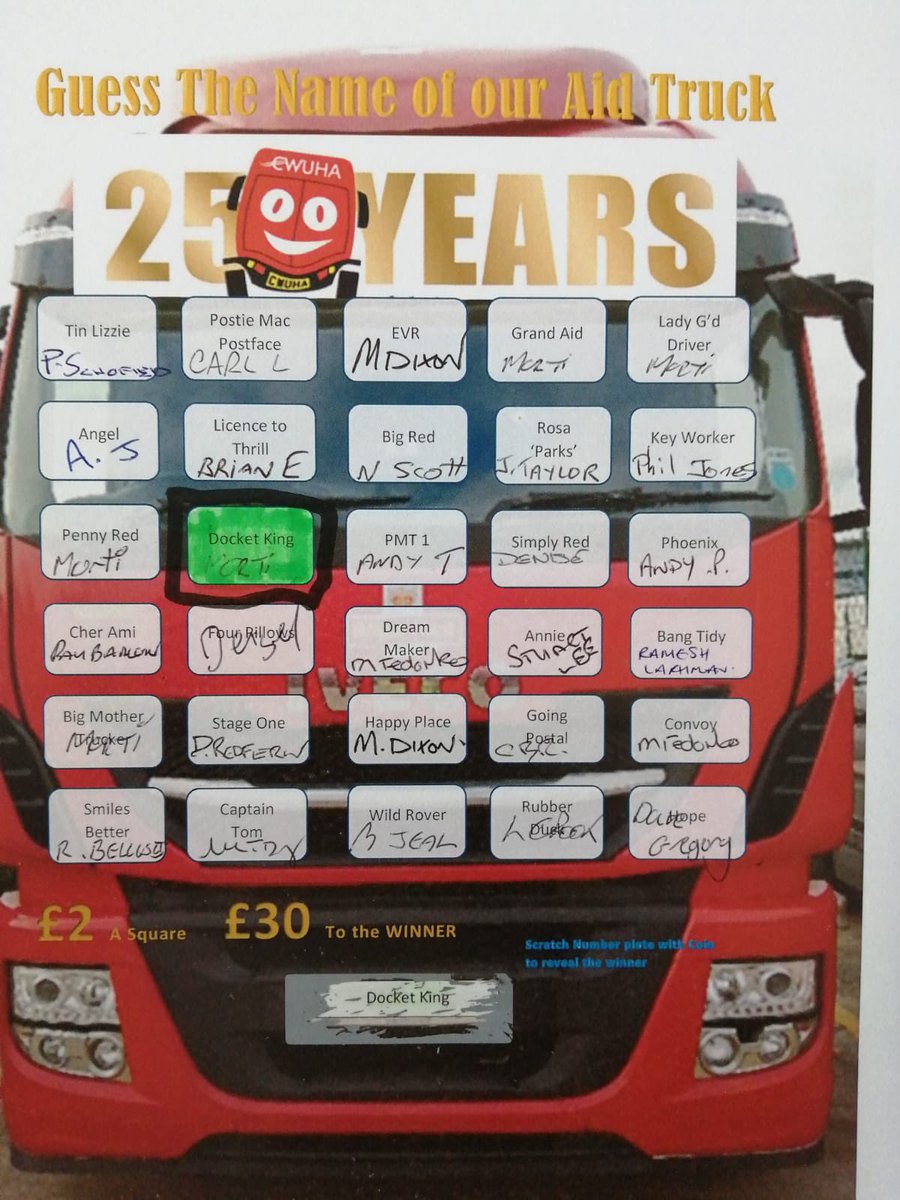 Guess The Name of our Aid Truck
25 YEARS
CWUHA
CWUHA
Tin Lizzie
P. SCHOFIELD
Postie Mac
Postface
CARL L
EVR
M DIXON
Grand Aid
MORTI
Lady G'd
Driver
MORTI
Angel
A. J
Licence to
Thrill
BRIAN E
Big Red
N SCOTT
Rosa
'Parks'
J. TAYLOR
Key Worker
Phil Jones
Penny Red
MORTI
Docket King
MORTI
PMT 1
ANDY T
Simply Red
DENISE
Phoenix
ANDY .P.
Cher Ami
Four Pillows
Dream
Maker
Annie
Bang Tidy
RAMESH
Big Mother
Trucker
MORTI
Stage One
D. REDFERN
Happy Place
M. DIXON
Going
Postal
Convoy
Smiles
Better
Captain
Tom
Wild Rover
JEAL
Rubber
Duck
Hope
Dave
Gregory
£2 A Square £30 To the WINNER
Scratch Number plate with Coin
to reveal the winner
Docket King
IVECO